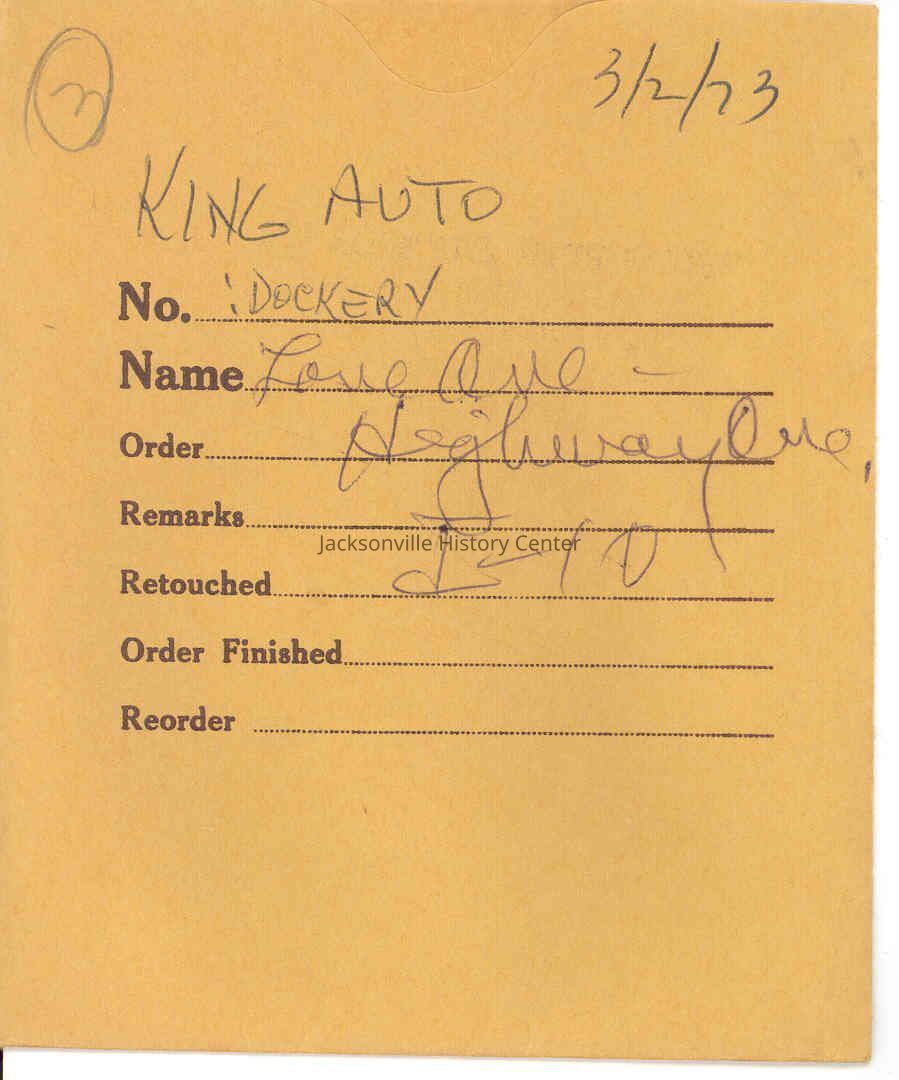 3/2/73
KING AUTO
No. : DOCKERY
Name Lane Ave –
Order Highway Ave,
Remarks
Jacksonville History Center
I-10
Retouched
Order Finished
Reorder